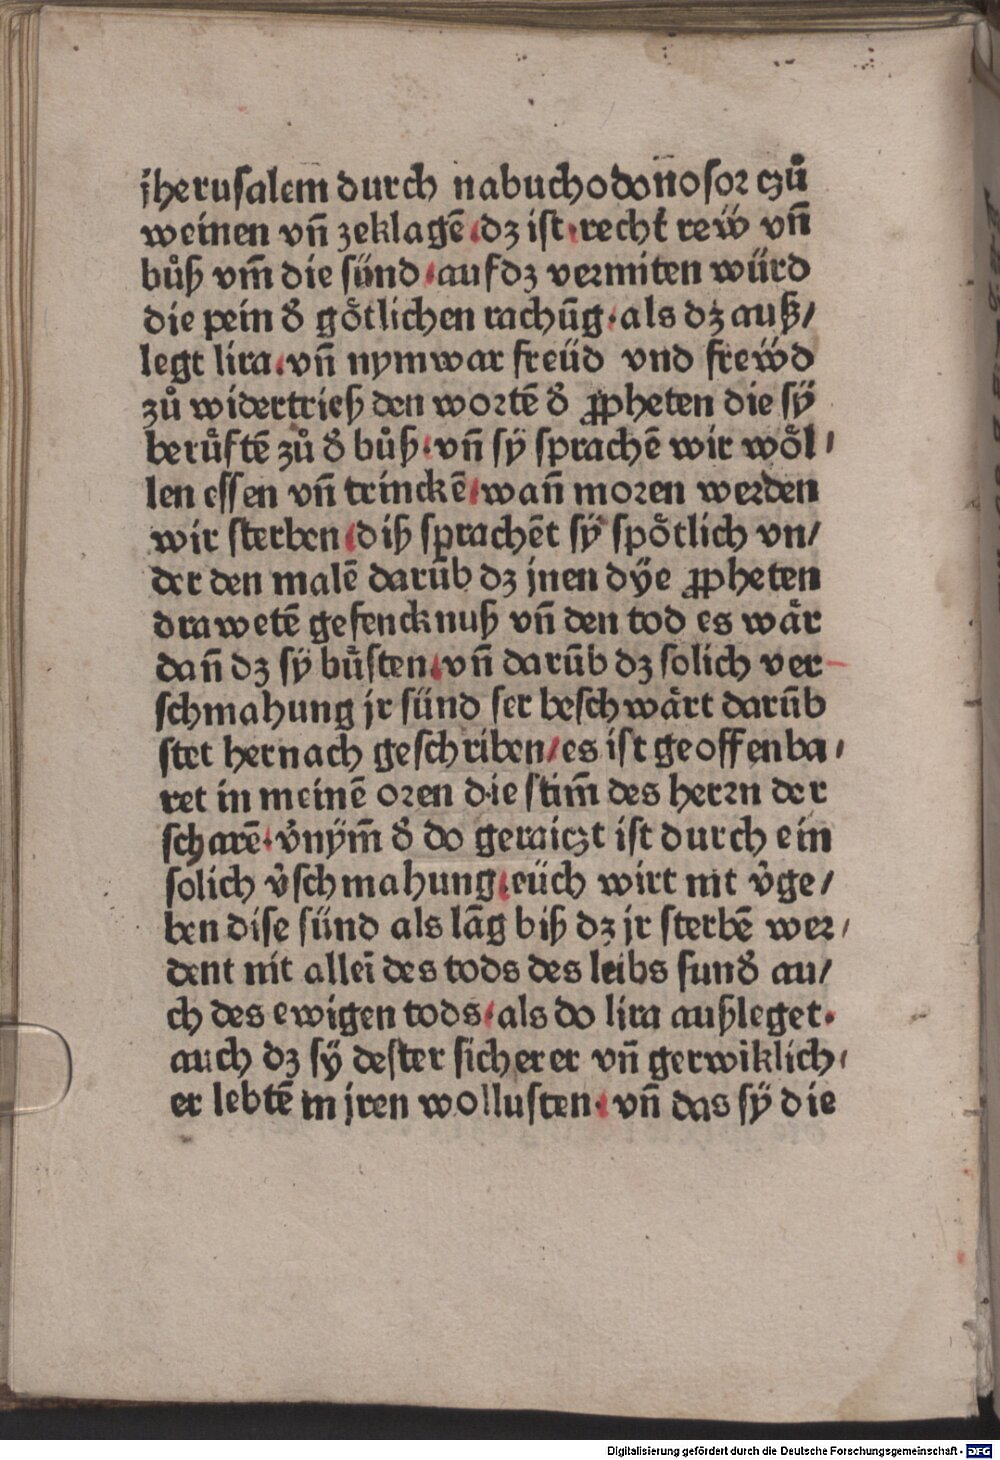 jherusalem durch nabuchodon̄osor czů
weinen vn̄ zeklagē. dz ist. recht rew̎ vn̄
bůß vm̄ die sünd. auf dz vermiten würd
die pein d̕ götlichen rachūg. als dz auß/
legt lira. vn̄ nym war freüd vnd frew̎d
zů widertrieß den wortē d̕ ꝓpheten die sÿ
berůftē zů d̕ bůß. vn̄ sÿ sprachē wir wöl/
len essen vn̄ trinckē. wan̄ moren werden
wir sterben. diß sprachēt sÿ spötlich vn/
der den malē darūb dz jnen dÿe ꝓpheten
drawetē gefencknuß vn̄ den tod es wär
dan̄ dz sÿ bůsten. vn̄ darūb dz solich ver
schmahung jr sünd ser beschwärt darūb
stet hernach geschriben/ es ist geoffenba/
ret in meinē oren die stim̄ des herrn der
scharē. v̕nÿm̄ d̕ do geraiczt ist durch ein
solich v̕schmahung. eüch wirt nit v̕ge/
ben dise sünd als lāg biß dz jr sterbē wer/
dent nit allei̅ des tods des leibs sund̕ au/
ch des ewigen tods. als do lira außleget.
auch dz sÿ dester sicherer vn̄ gerwiklich/
er lebtē in jren wollusten. vn̄ das sÿ die
Digitalisierung gefördert durch die Deutsche Forschungsgemeinschaft - DFG